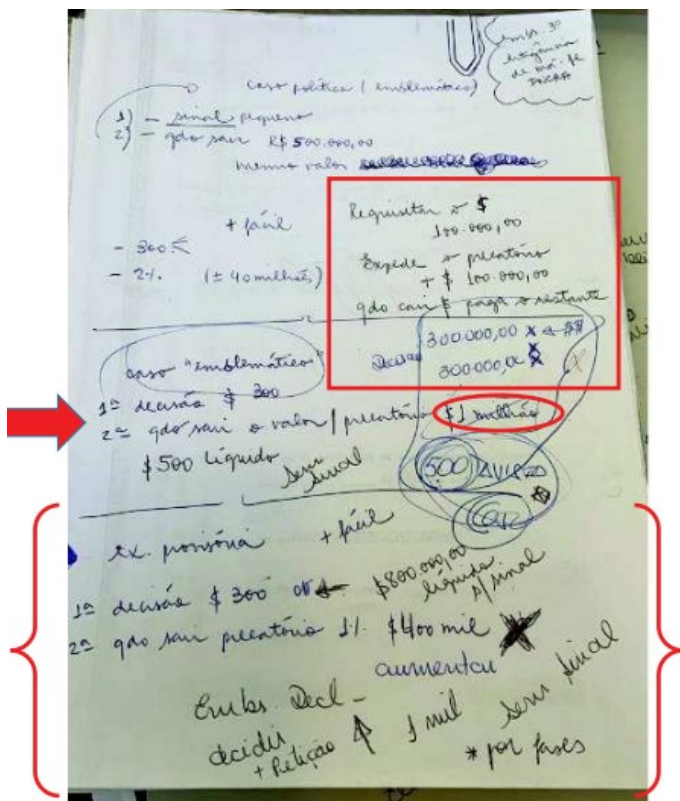 Embs. 3º
de má-fé
caso política / emblemático)
1) - sinal pequeno
2) - qdo sair R$ 500.000,00
mesmo valor
Requisitar o $
100.000,00
+ fácil
- 300
- 2%. (± 40 milhões)
Expede o precatório
+ $ 100.000,00
qdo cair $ paga o restante
300.000,00
300.000,00
caso "emblemático"
1ª decisão $ 300
2ª qdo sair o valor / precatório $ 1 milhão
$ 500 líquido
sem sinal
500
ex. provisória + fácil
1ª decisão $ 300 $800.000,00
líquido
s/ sinal
2ª qdo sair precatório 1%. $400 mil
aumentar
Embs. Decl -
decidir
+ Petição 1 mil sem sinal
* por fases